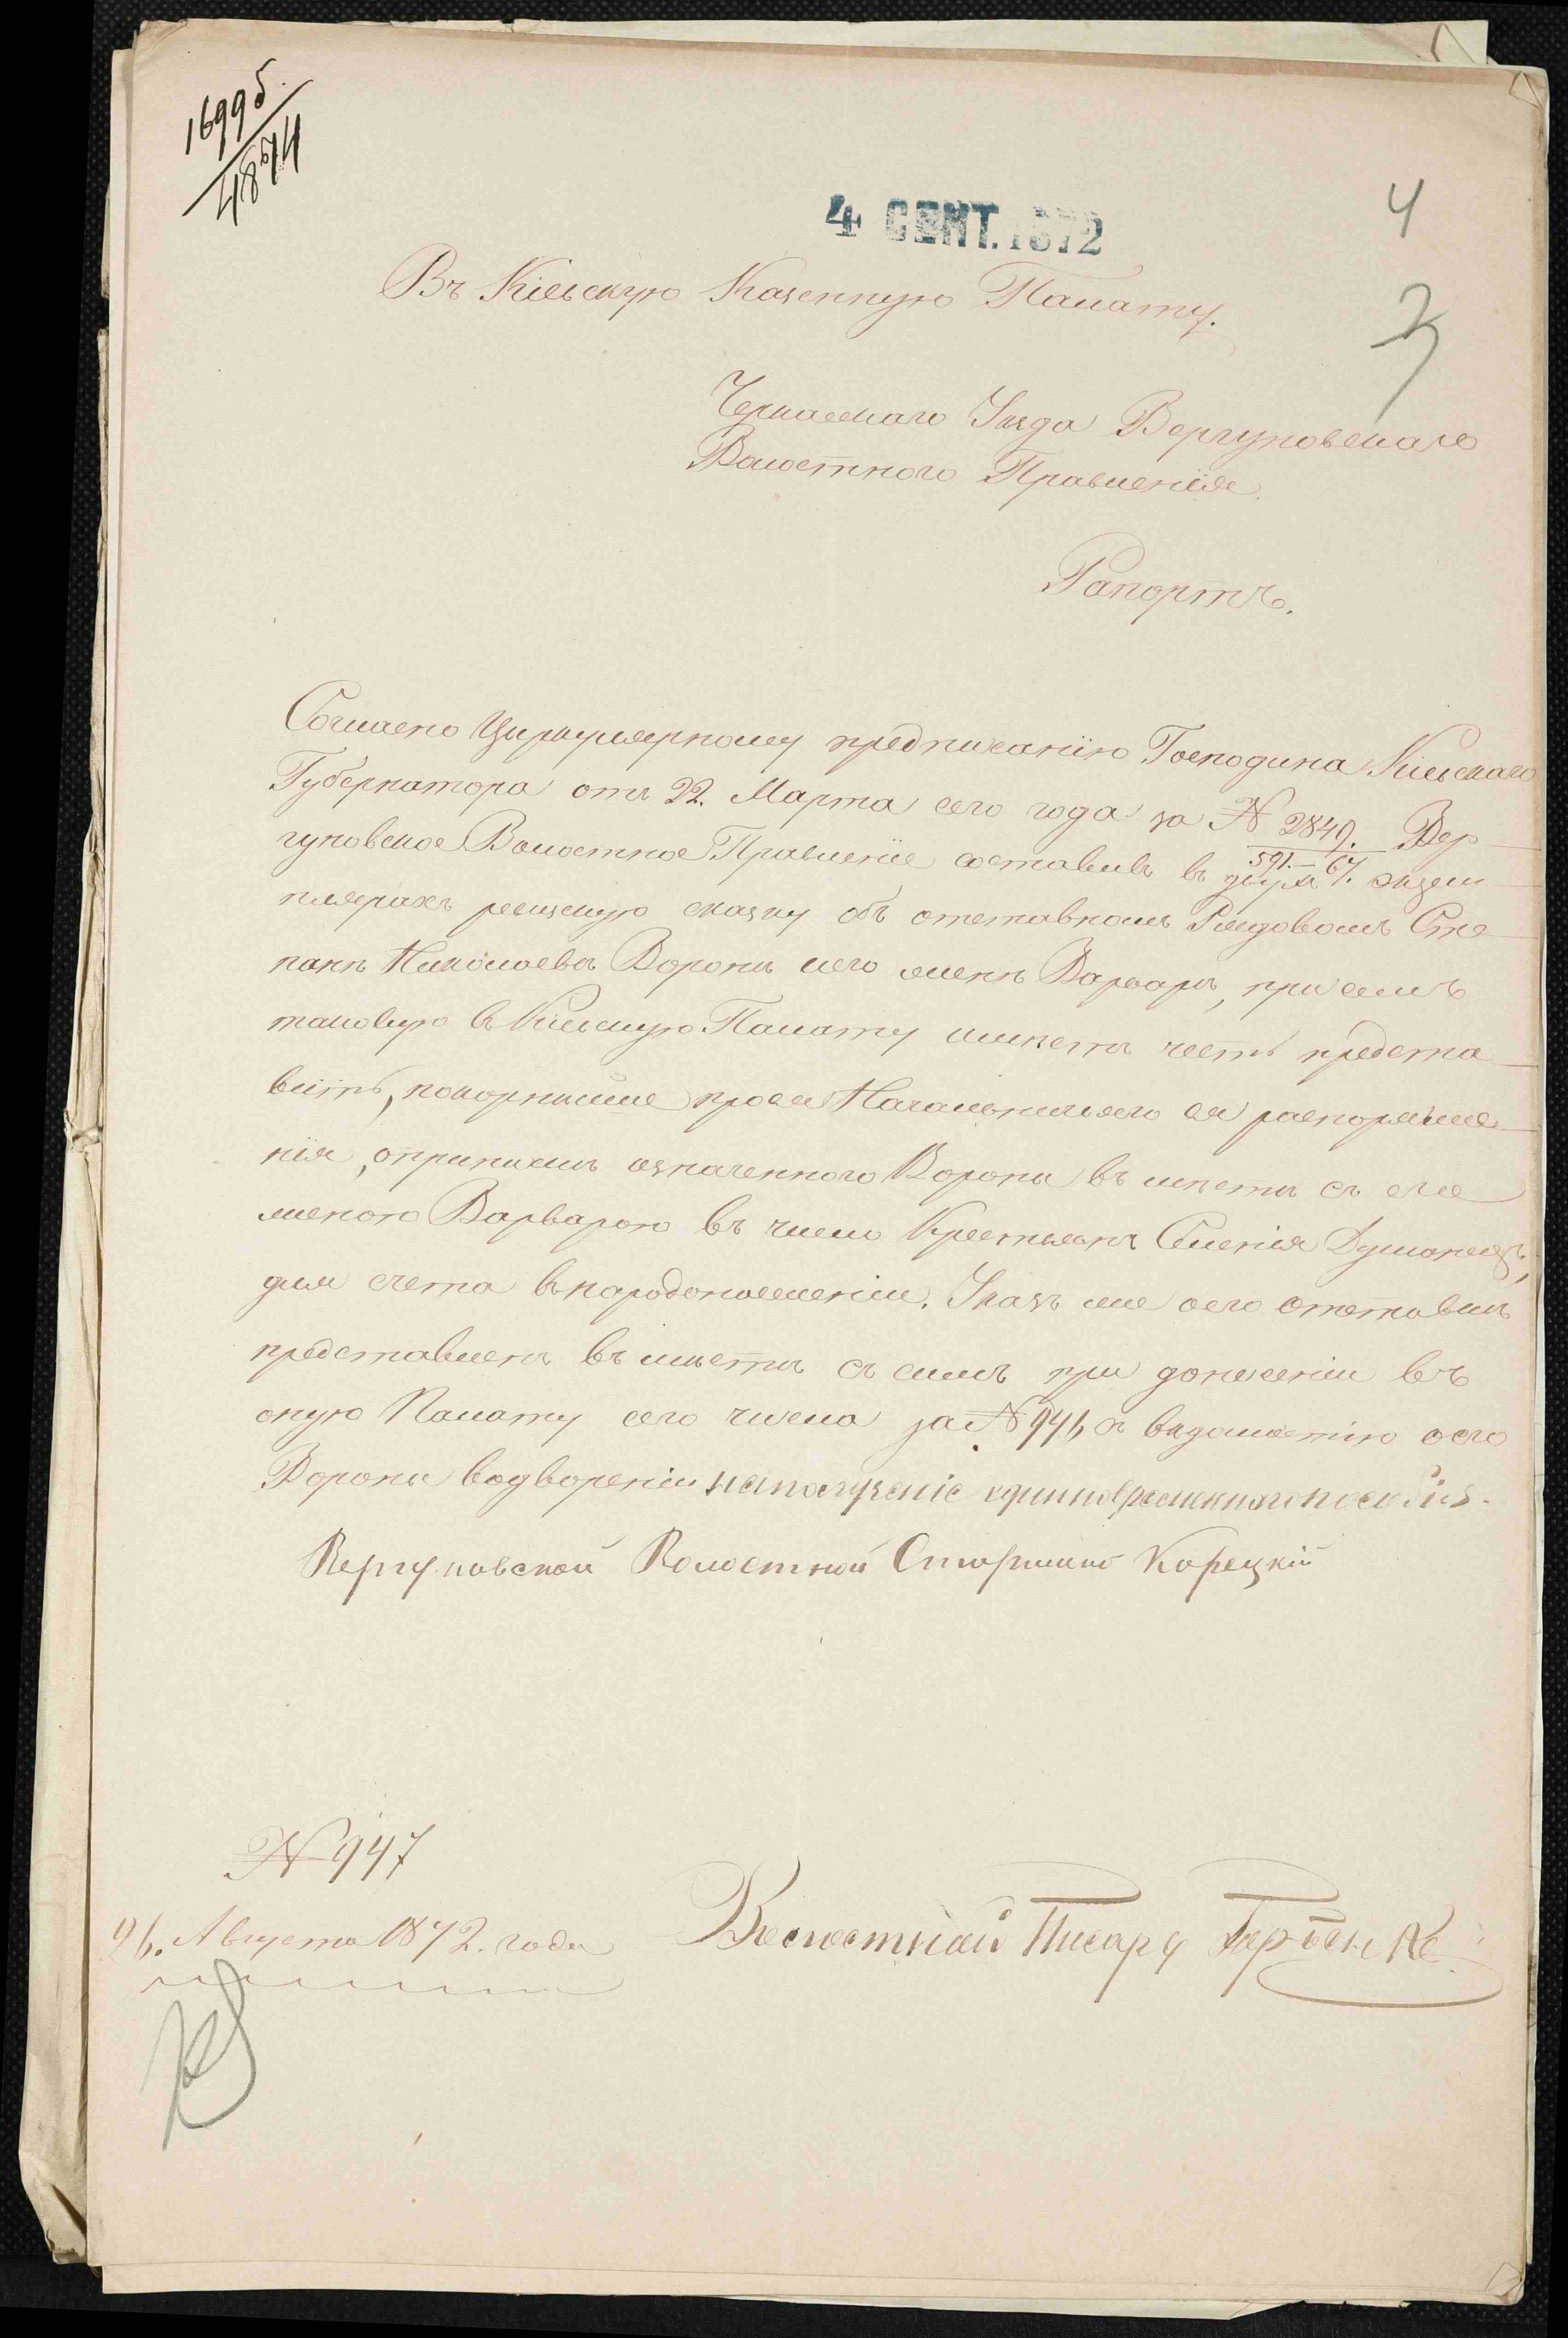 16995.
4874
4 СЕНТ. 1872
4
3
Въ Кіевскую Казенную Палату.
Черкаскаго Уѣзда Вергуновскаго
Волостного Правленія
Рапортъ.
Согласно Циркулярному предписанію Господина Кіевскаго
Губернатора отъ 22. Марта сего года за № 2849. Вер
591.–67.
гуновское Волостное Правленіе составивъ въ двухъ экзем
плярахъ ревизскую сказку объ отставномъ Рядовомъ Сте
панѣ Николаевѣ Воронѣ и его женѣ Варварѣ, при семъ
таковую въ Кіевскую Палату имѣетъ честь предста
вить, покорнѣйше прося Начальничьяго ея распоряже
нія, о причисл. означенного Вороны въ мѣстѣ съ его
женою Варварою въ число Крестьянъ Селенія
для счета в народонаселеніи. Указъ же о его отставкѣ
представленъ въ мѣстѣ съ симъ при донесеніи въ
оную Палату сего числа за № 946 съ вѣдомостію о его
Вороны водвореніи на полученіе единовременнаго пособія.
Вергуновской Волостной Старшина Корецкій
№ 947
Августа 1872. года
Волостной Писарь